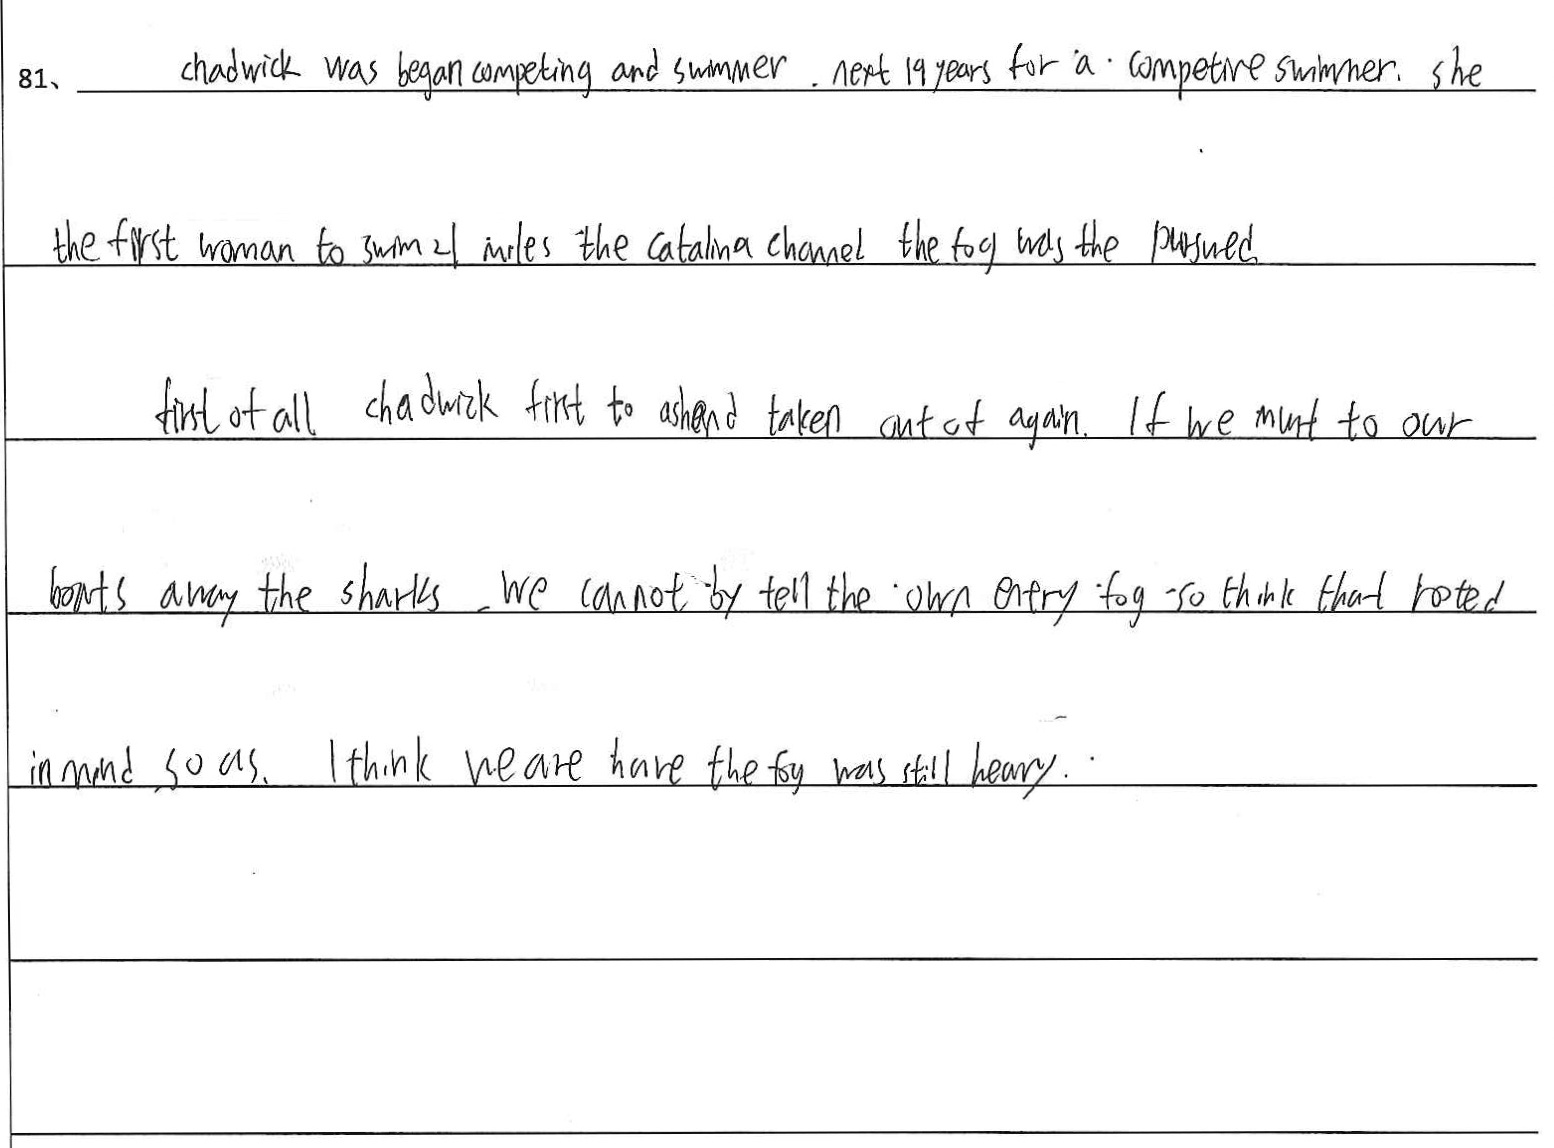 81、 chadwick was began competing and swimmer. next 19 years for a. competive swimmer. she
the first woman to swim 21 miles the catalina channel the fog was the pursued
first of all chadwick first to taken out of again. If we must to our
boats away the sharks. We cannot by tell the own entry fog so think that rooted
in mind so as. I think we are have the fog was still heavy.